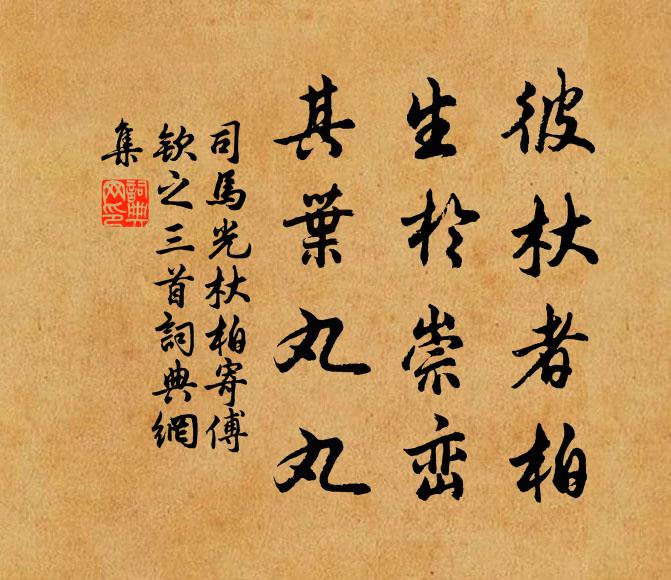 彼杕者柏
生於崇峦
其葉丸丸
司馬光杕柏寄傅
欽之三首詞典網
集
詞典網印